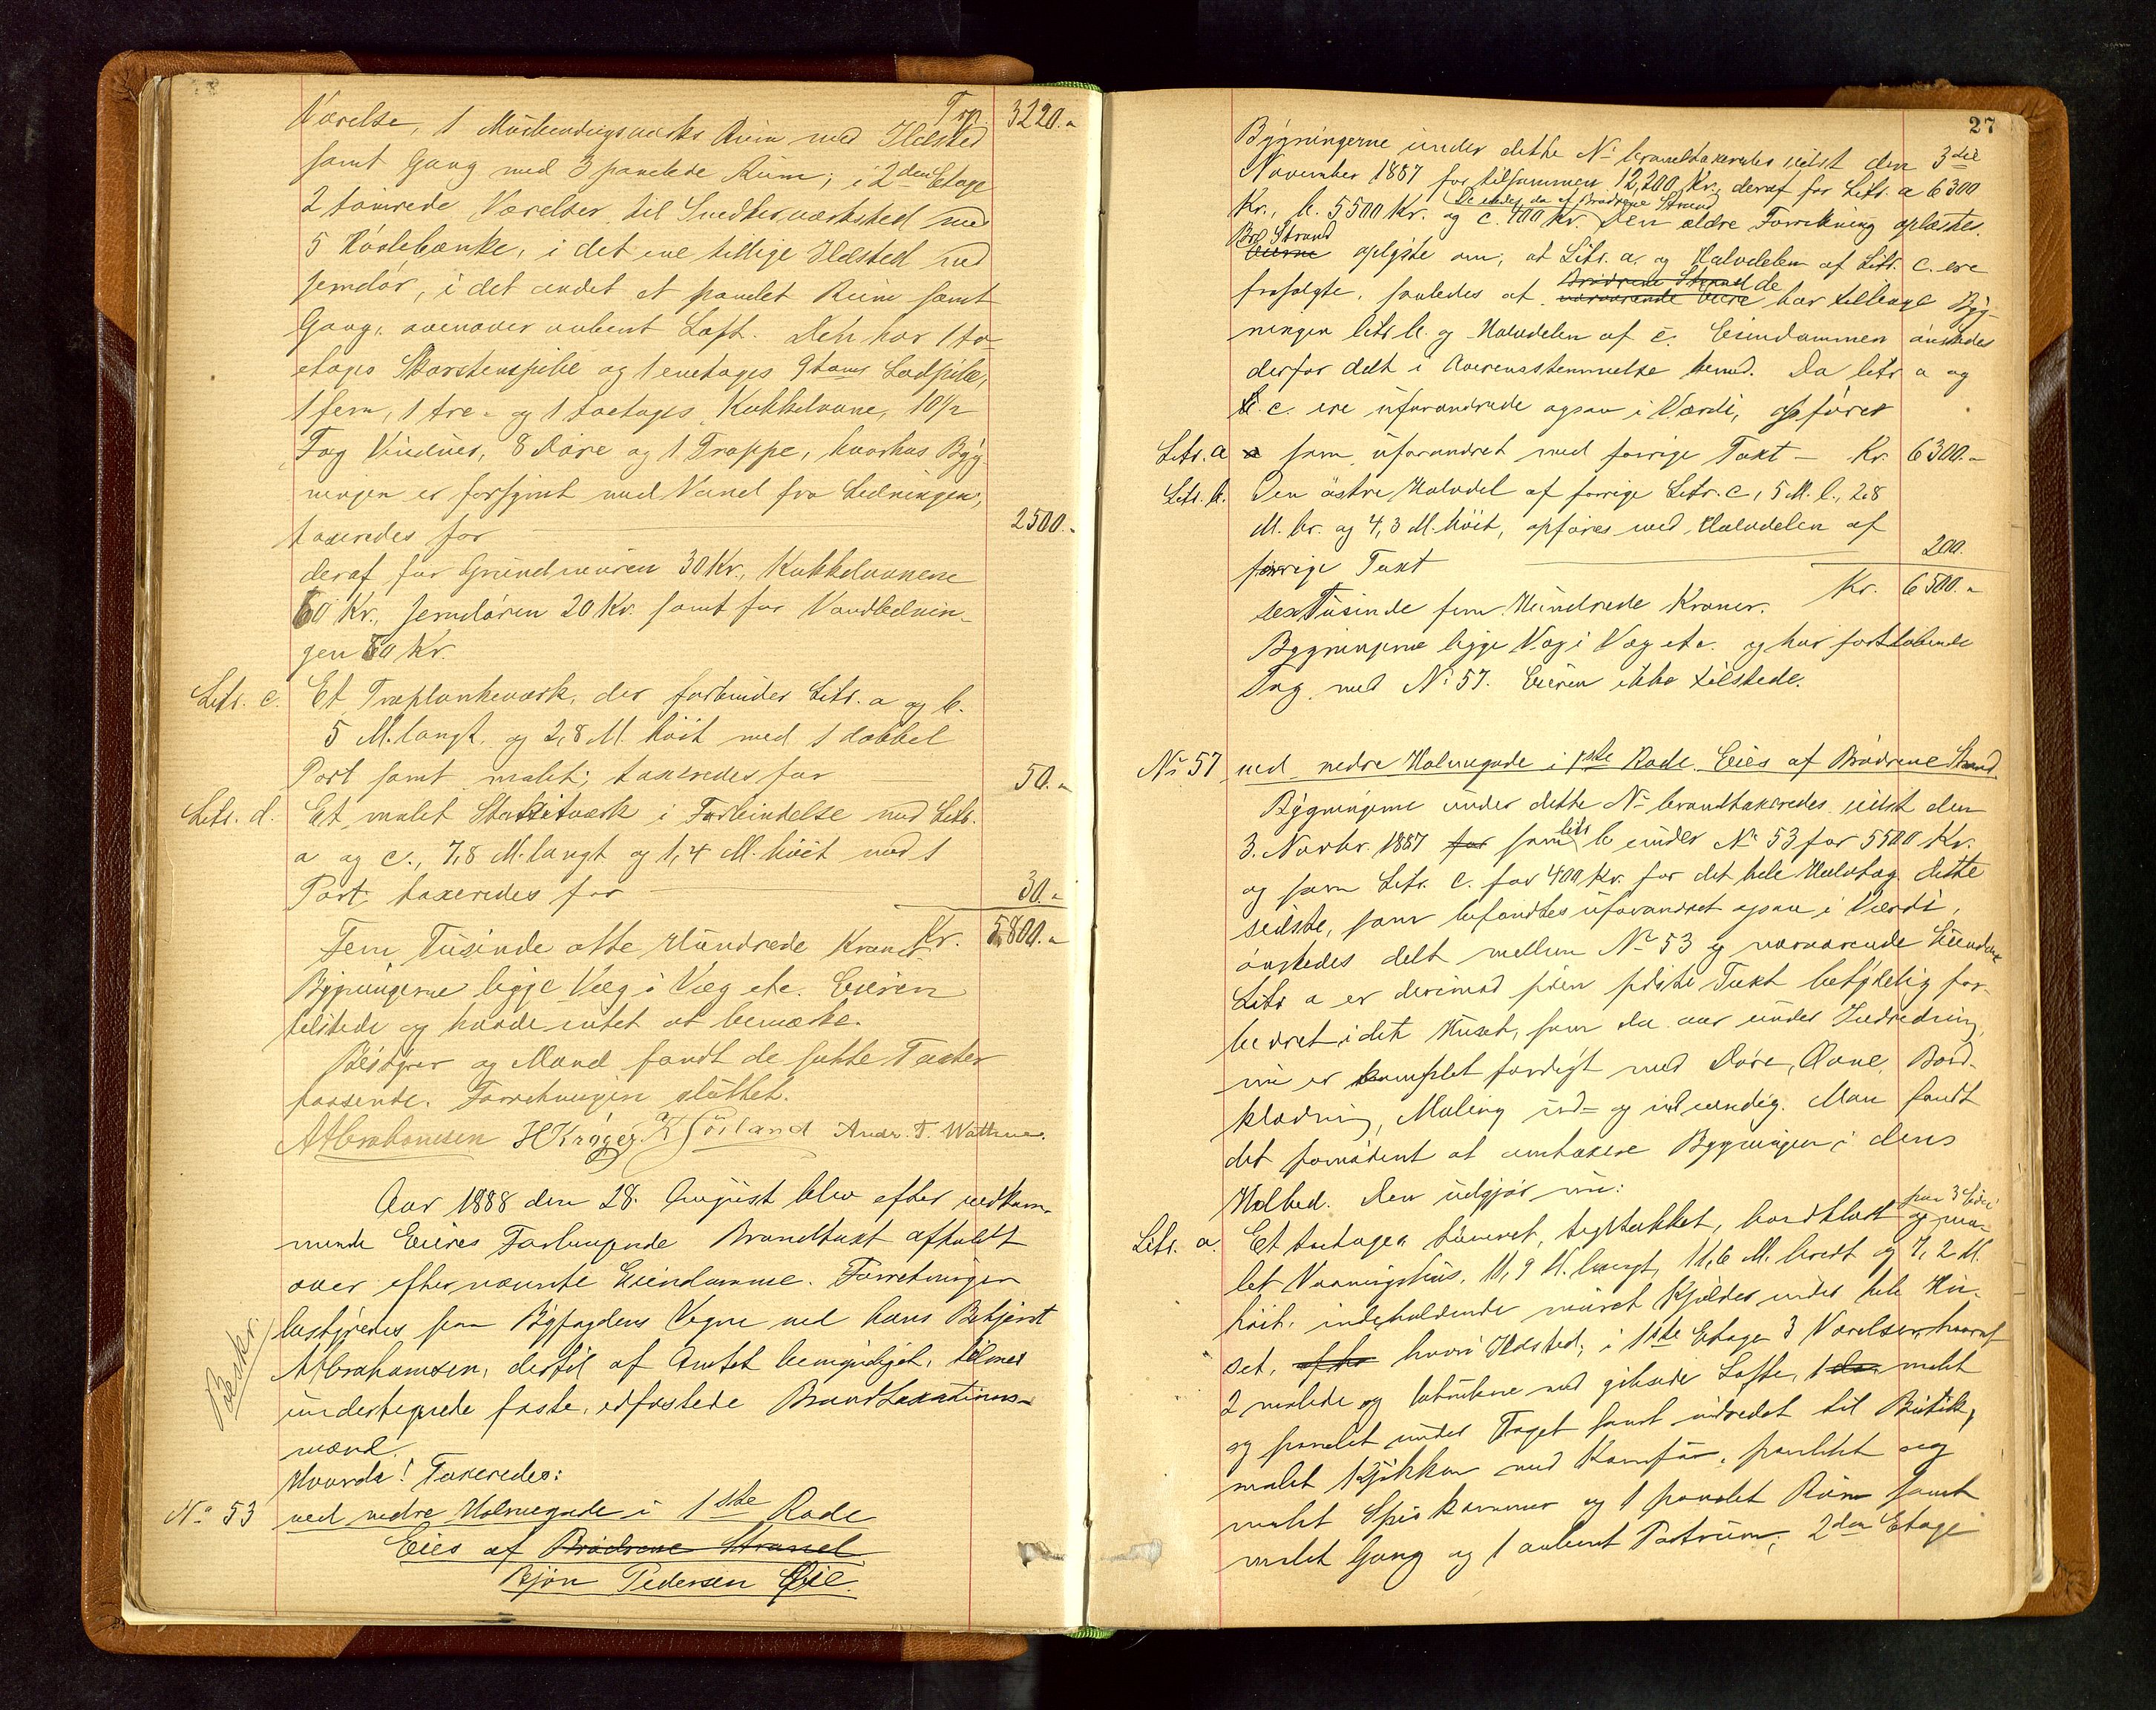 Trp. 3220.-
Værelse, 1 Murbindingsværks Rum med Ildsted
samt Gang med 3 panelede Rum; i 2den Etage
2 tømrede Værelser til Snedkerværksted med
5 Høvlebænke, i det ene tillige Ildsted med
Jerndør, i det andet et panelet Rum samt
Gang, ovenover aabent Loft. Den har 1 to-
etages Skorstenspibe og 1 enetages Lodpibe,
1 fem, 1 tre- og 1 toetages Kakkelovne, 10½
Fag Vinduer, 8 Døre og 1 Trappe, hvorhos Byg-
ningen er forsynt med Vand fra Ledningen,
taxeredes for 2500.-
deraf for Grundmuren 30 Kr., Kakkelovnene
60 Kr., Jerndøren 20 Kr. samt for Vandlednin-
gen 50 Kr.
Litr. c. Et Træplankeværk, der forbinder Litr. a og b.
5 M. langt, og 2,8 M. høit med 1 dobbel
Port samt malet; taxeredes for 50.-
Litr. d. Et malet Stakitværk i Forbindelse med Litr.
a og c., 7,8 M. langt og 1,4 M. høit med 1
Port, taxeredes for 30.-
Fem Tusinde otte Hundrede Kroner. Kr. 5800.-
Bygningerne ligge Væg i Væg etc. Eieren
tilstede og havde intet at bemærke.
Bestyrer og Mænd fandt de satte Taxter
passende. Forretningen sluttet.
A Abrahamsen H Krøger K Sörland Andr. T. Wathne.
Aar 1888 den 28. August blev efter vedkom-
mende Eieres Forlangende Brandtaxt afholdt
over efternævnte Eiendomme. Forretningen
bestyredes paa Byfogdens Vegne ved hans Betjent
Abrahamsen, dertil af Amtet bemyndiget, tilmed
undertegnede faste, edfæstede Brandtaxations-
mænd.
Beskr.
Hvorda! Taxeredes:
No 53 ved nedre Holmegade i 1ste Rode
Eies af Brødrene Strand
Bjørn Pedersen Øie.
27
Bygningerne under dette No brandtaxeredes sidst den 3die
November 1887 for tilsammen 12,200 Kr., deraf for Litr. a 6300
Kr., b. 5500 Kr. og c. 400 Kr. Den ældre Forretning oplæstes.
Brd Strand
Eierne oplyste om, at Litr. a. og Halvdelen af Litr. c. ere
Brødrene Strand de
frasolgte, saaledes at nærværende Eiere har tilbage Byg-
ningen litr b. og Halvdelen af c. Eiendommen ønskedes
derfor delt i Overensstemmelse hermed. Da litr a og
b. c. ere uforandrede ogsaa i Værdi, opføres
Litr. a som uforandret med forrige Taxt - Kr. 6300.-
Litr. b. Den østre Halvdel af forrige Litr. c, 5 M. l., 2,8
M. br. og 4,3 M. høit, opføres med Halvdelen af
forrige Taxt 200.
Kr. 6500.-
sex Tusinde fem Hundrede Kroner.
Bygningerne ligge Væg i Væg etc. og har fortløbende
Tag med No 57. Eieren ikke tilstede.
No 57 ved nedre Holmegade i 1ste Rode. Eies af Brødrene Strand.
Bygningerne under dette No brandtaxeredes sidst den
3. Novbr. 1887 for som litr b under No 53 for 5500 Kr.
og som Litr. c. for 400 Kr. for det hele Halvtag dette
sidste, som befandtes uforandret ogsaa i Værdi,
ønskedes delt mellem No 53 og nærværende Eiendom
Litr a er derimod siden sidste Taxt betydelig for-
bedret idet Huset, som da var under Indredning,
nu er komplet færdigt med Døre, Ovne, Bord-
klædning, Maling ind- og udvendig. Man fandt
det fornødent at omtaxere Bygningen i dens
Helhed. Den udgjør nu:
paa 3 Sider
Litr. a. Et toetages tømret, tegltækket, bordklædt og ma-
let Vaaningshus, 11,9 M. langt, 11,6 M. bredt og 7,2 M.
høit, indeholdende muret Kjælder under hele Hu-
set, hvori Ildsted; i 1ste Etage 3 Værelser, hvoraf
2 malede og betrukne med gibsede Lofte, 1 malet
og panelet under Taget samt indredet til Butik,
malet Kjøkken med Komfur, panelet og
malet Spiskammer og 1 panelet Rum samt
malet Gang og 1 aabent Portrum; 2den Etage